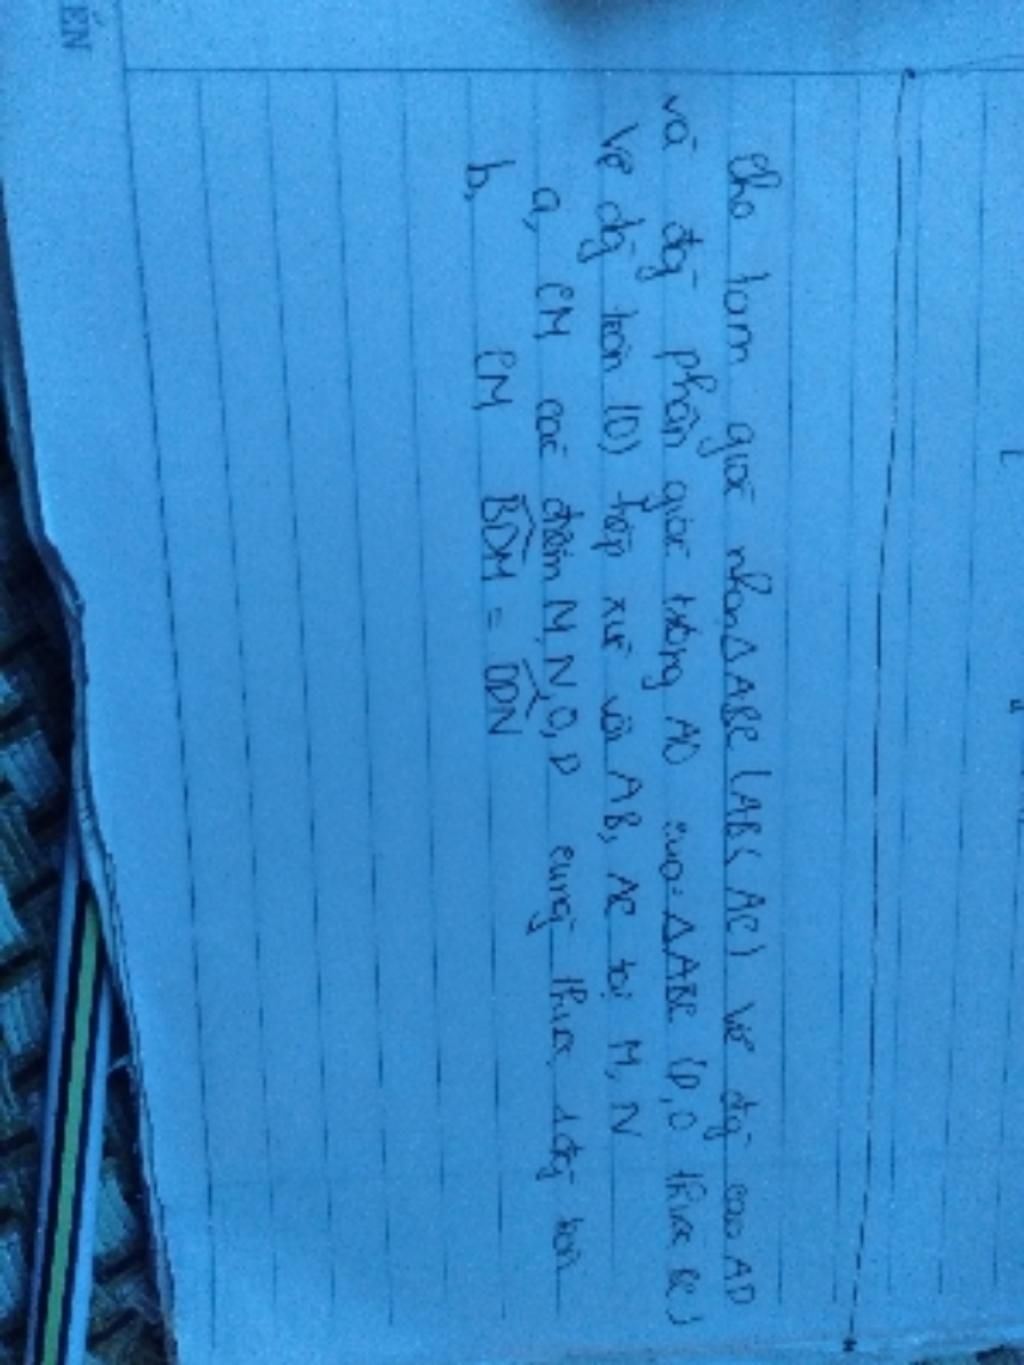 Cho tam giác nhọn ΔABC (AB< AC) vẽ đg̃ cao AD
và đg̃ phân giác trong AO của ΔABC (D,O thuộc BC)
Vẽ đg̃ tròn (O) tiếp xúc với AB, AC tại M, N
a, CM các điểm M, N, O, D cùng thuộc 1 đg̃ tròn
b, CM BDM = ODN
ÊN